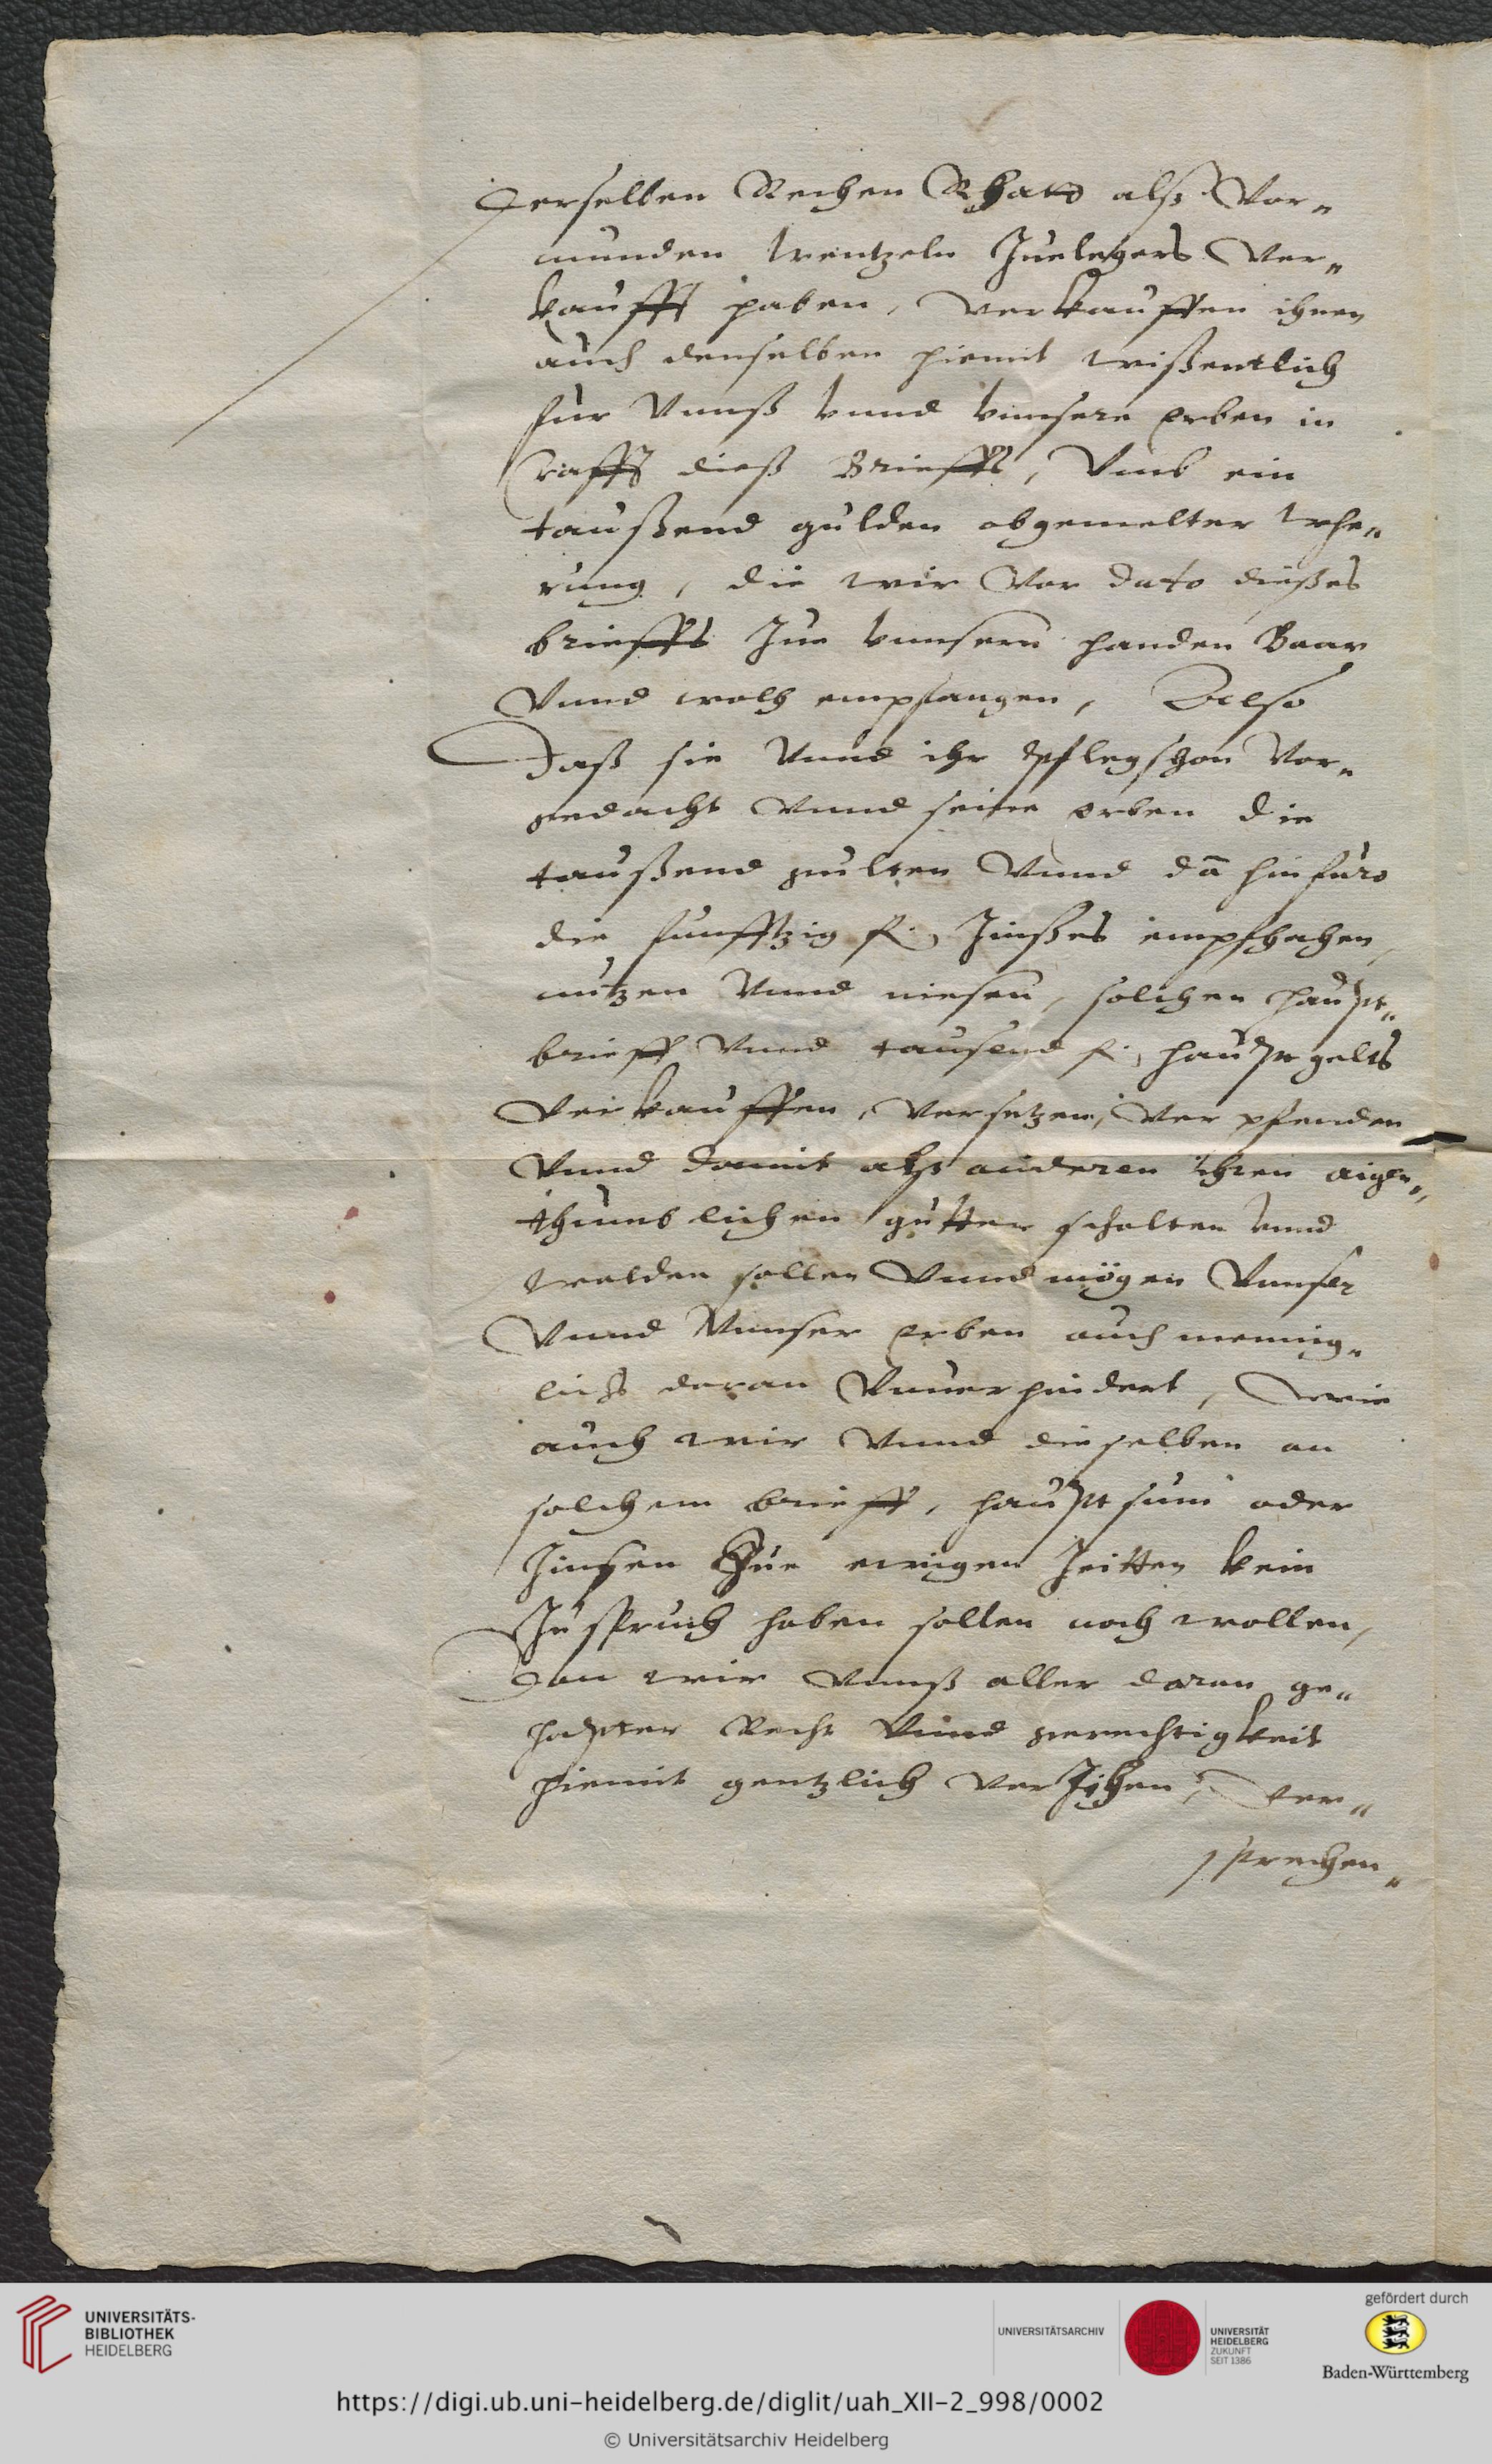 derselben Rechen Rhatt alß Vor„
munden Wentzeln Zuelegers Ver„
kaufft haben, verkauffen ihnen
auch denselben hiemit wißentlich
für Vnnß vnnd vnnsere erben in
Crafft dieß Brieffs, Vmb ein
taußend gulden obgemelter wehe„
rung, die wir Vor dato dießes
brieffs Jnn vnnsern handen Baar
Vnnd wolh empfangen, Also
Daß sie Vnnd ihr Pflegsohn Vor„
gedacht Vnnd seine erben die
taußend gulten Vnnd dā hinfüro
die funfftzig fl. Zinßes empfhahen,
nutzen Vnnd niesen, solchen haupt„
brieff Vnnd tausend fl. hauptgelts
Verkauffen, Versetzen, Verpfenden
Vnnd damit alß anderen ihren aigen„
thumblichen gütter schalten vnnd
walden sollen Vnnd mögen Vnnser
Vnnd Vnnser erben auch mennig„
lichs daran Vnuerhindert, Wie
auch wir Vnnd dieselben an
solchem brieff, hauptsum oder
Zinsen Zue ewigen Zeitten kein
Zuspruch haben sollen noch wollen,
Dan wir Vnnß aller daran ge„
hapter Recht Vnnd gerechtigkeit
hiemit gentzlich Verzihen, Ver„
sprechen„
UNIVERSITÄTS-
BIBLIOTHEK
HEIDELBERG
UNIVERSITÄTSARCHIV
UNIVERSITÄT
HEIDELBERG
ZUKUNFT
SEIT 1386
gefördert durch
Baden-Württemberg
https://digi.ub.uni-heidelberg.de/diglit/uah_XII-2_998/0002
© Universitätsarchiv Heidelberg